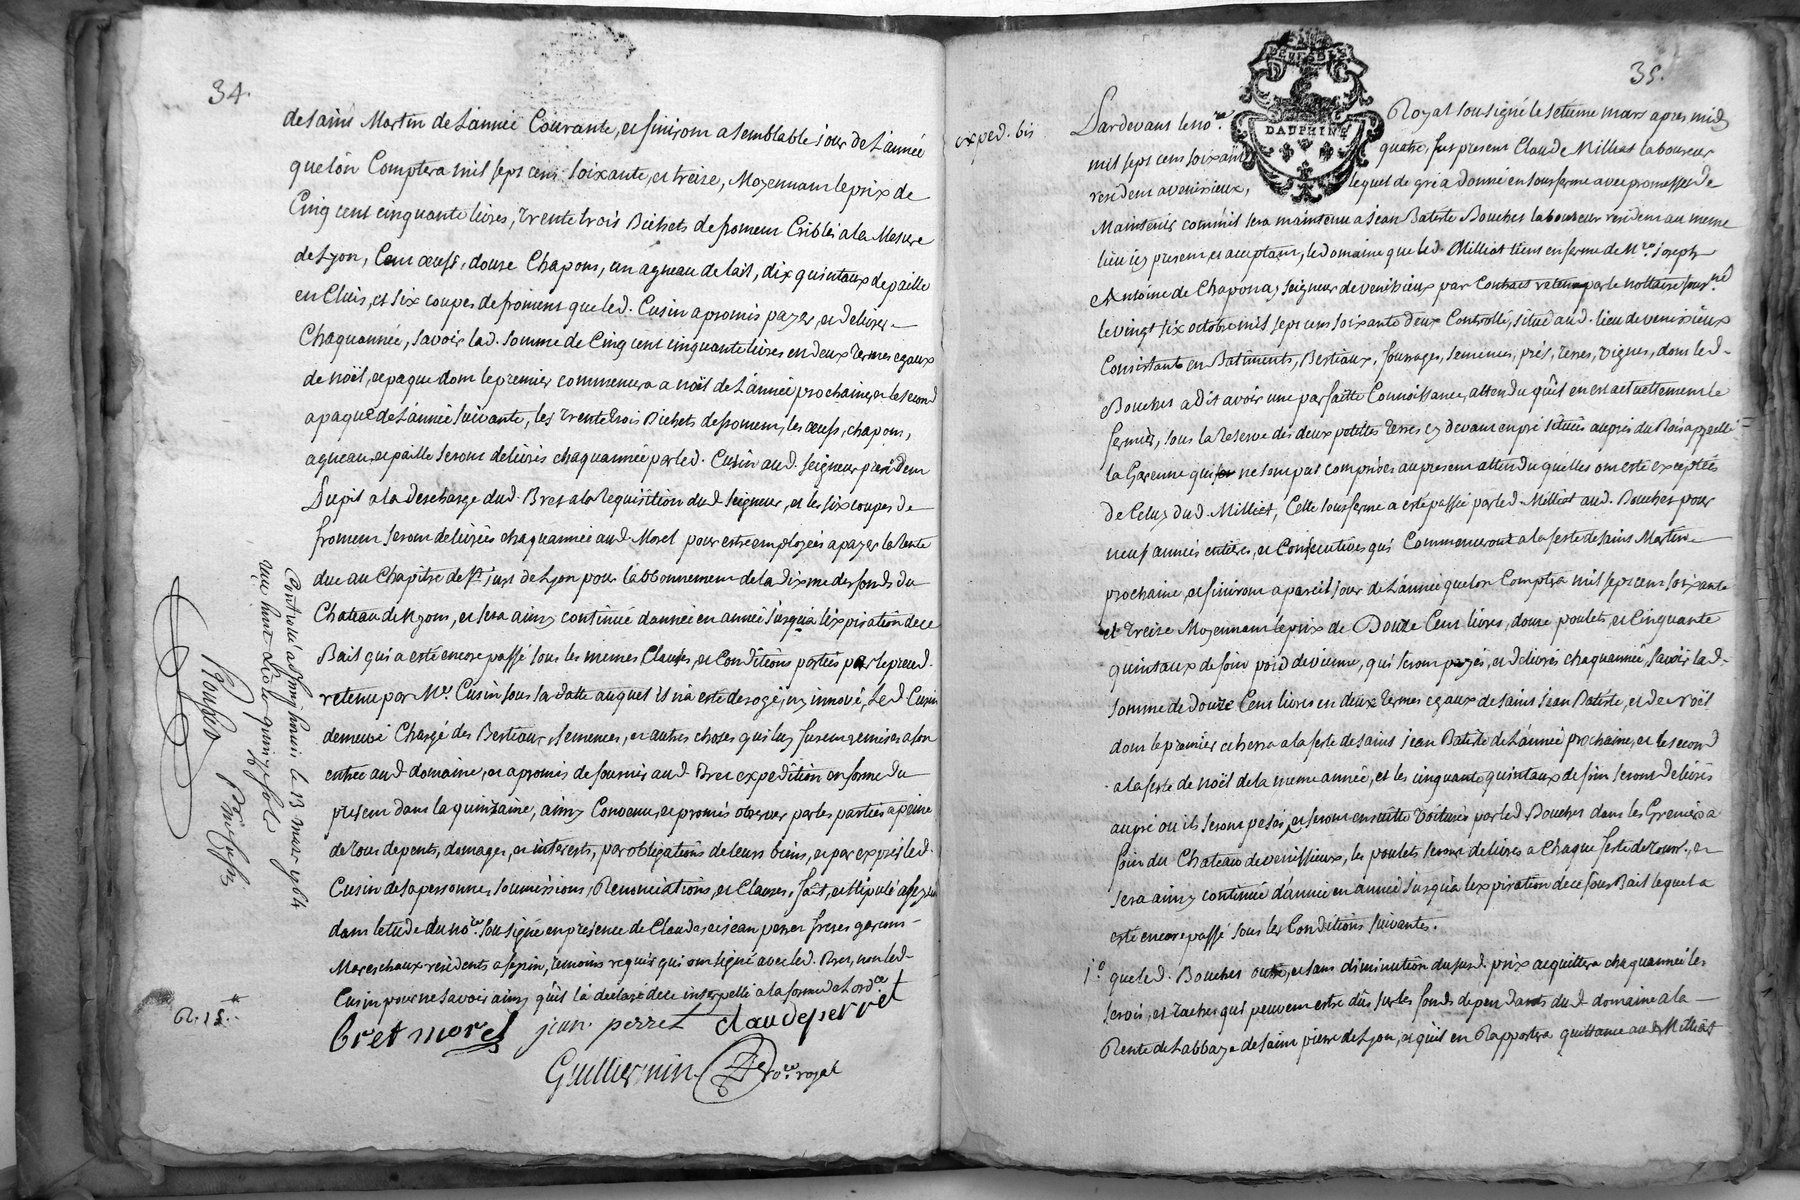 34.
de saint Martin de L'année Courante, et finiront a semblable jour de L'année
que lon Comptera mil sept cent soixante, et treize, Moyennant le prix de
Cinq cent cinquante livres, trente trois Bichets de froment Criblés a la Mesure
de Lyon, Cent œufs, douze Chapons, un agneau de lait, dix quintaux de paille
en Cluis, et six coupes de froment que led. Cusin a promis payer, et delivrer
Chaqu'année, Savoir lad. somme de Cinq cent cinquante livres en deux termes egaux
de noël, et paque dont le premier commencera a noël de L'année prochaine, et le second
a paque de L'année suivante, les trente trois Bichets de froment, les œufs, chapons,
agneau, et paille seront delivrés chaqu'année par led. Cusin aud. seigneur president
Dupit a la decharge dud. Bret a la requisition dud. seigneur, et les six coupes de
froment seront delivrées chaqu'année aud. Morel pour estre employées a payer la rente
due au Chapitre de St. just de Lyon pour l'abbonnement de la dixme des fonds du
Chateau de Nyons, et sera ainsy continué d'année en année jusqu'à l'expiration de ce
Bail qui a esté encore passé sous les memes Clauses, et Conditions portées par le preced.
retenu par Me. Cusin sous sa datte auquel il n'a esté derogé, ny innové, Led. Cusin
demeure Chargé des Bestiaux, semences, et autres choses qui luy furent remises a son
entrée aud. domaine, et a promis de fournir aud. Bret expedition en forme du
present dans la quinzaine, ainsy Convenu, et promis observer par les parties a peine
de tous depents, domages, et interests, par obligations de leurs biens, et par exprès led.
Cusin de sa personne, soumissions, Renonciations, et Clauses, fait, et stipulé a feyzin
dans l'etude du nore. sousigné en presence de Claude, et jean perret freres garcons
Mareschaux residents a feyzin, temoins requis qui ont signé avec led. Bret, non led.
Cusin pour ne savoir ainsy qu'il l'a declaré de ce interpellé a la forme de L'ordce.
bret morel jean perret claude perret
Guillermin Nore. royal
Controllé a St. Simphorien le 13 mars 1764
reçu huit livres quinze sols
R. 15.
35.
exped. bis
DAUPHINE
Pardevant le nore. Royal sousigné le setieme mars apres midy
mil sept cent soixante quatre, fut present Claude Milliat laboureur
resident a venissieux, lequel de gré a donné en sousferme avec promesse de
Maintenir comme il sera maintenu a Jean Batiste Boucher laboureur resident au meme
lieu icy present et acceptant, le domaine que led. Milliat tient en ferme de Mre. Joseph
Antoine de Chaponay seigneur de venissieux par Contract retenu par le nottaire sousné.
le vingt six octobre mil sept cent soixante deux Controllé, situé aud. lieu de venissieux
Consistant en Batiments, Bestiaux, fourrages, semences, prés, terres, vignes, dont led.
Boucher a dit avoir une parfaitte Connoissance, attendu qu'il en est actuellement le
fermier, sous la Reserve des deux petittes terres cy devant en pré situées auprès du Bois appellé
la Garenne qui ne sont pas comprises au present attendu qu'elles ont esté exceptées
de Celuy dud. Milliat, Cette sousferme a esté passée par led. Milliat aud. Boucher pour
neuf années entieres, et Consecutives qui Commenceront a la feste de saint Martin
prochaine, et finiront a pareil jour de L'année que lon Comptera mil sept cent soixante
et treize Moyennant le prix de Douze Cent livres, douze poulets, et Cinquante
quintaux de foin poid de vienne, qui seront payés, et delivrés chaqu'année, savoir lad.
somme de douze Cent livres en deux termes egaux de saint jean Batiste, et de noël
dont le premier echerra a la feste de saint jean Batiste de L'année prochaine, et le second
a la feste de noël de la meme année, et les cinquante quintaux de foin seront delivrés
au pré ou ils seront pesés, et seront ensuitte voiturés par led. Boucher dans les Greniers a
foin du Chateau de venissieux, les poulets seront delivrés a Chaque feste de Touss., et
sera ainsy continué d'année en année jusqu'à l'expiration de ce sous Bail lequel a
esté encore passé sous les Conditions suivantes.
1°. que led. Boucher outre, et sans diminution dususd. prix acquittera chaqu'année les
servis, et taches qui peuvent estre dûs sur les fonds dependants dud. domaine a la
Rente de L'abbaye de saint pierre de Lyon, et qu'il en Rapportera quittance aud. Milliat